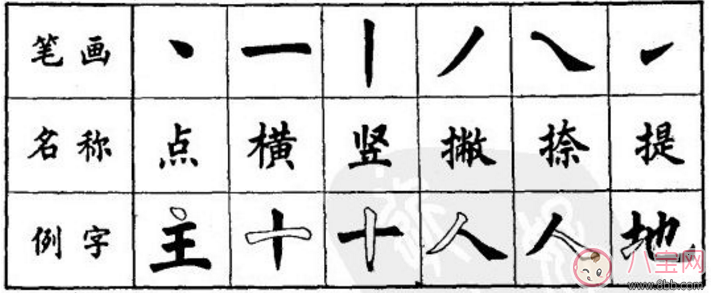 笔画 丶 一 丨 丿 ㇏ ㇀
名称 点 横 竖 撇 捺 提
例字 主 十 十 人 人 地
八宝网
www.8bb.com